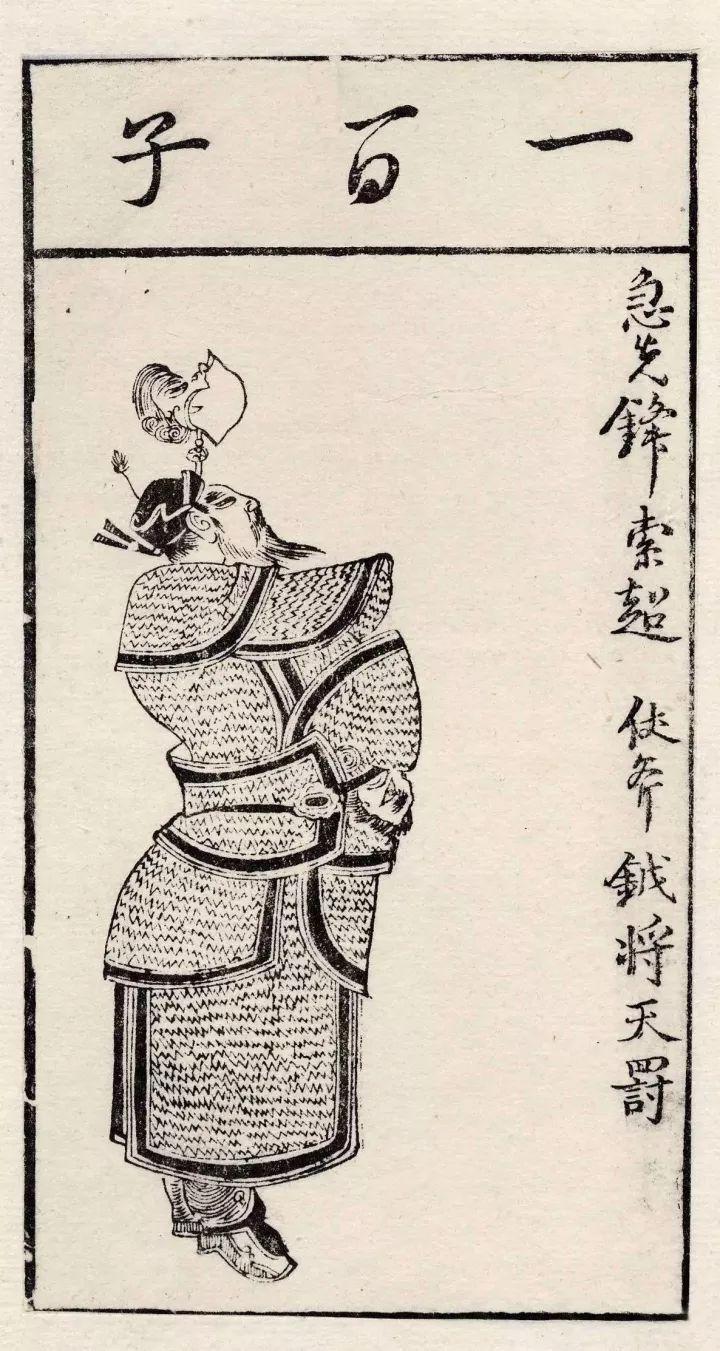 一百子
急先鋒索超 仗斧鉞将天罰